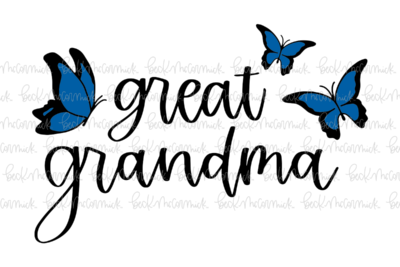 great
grandma